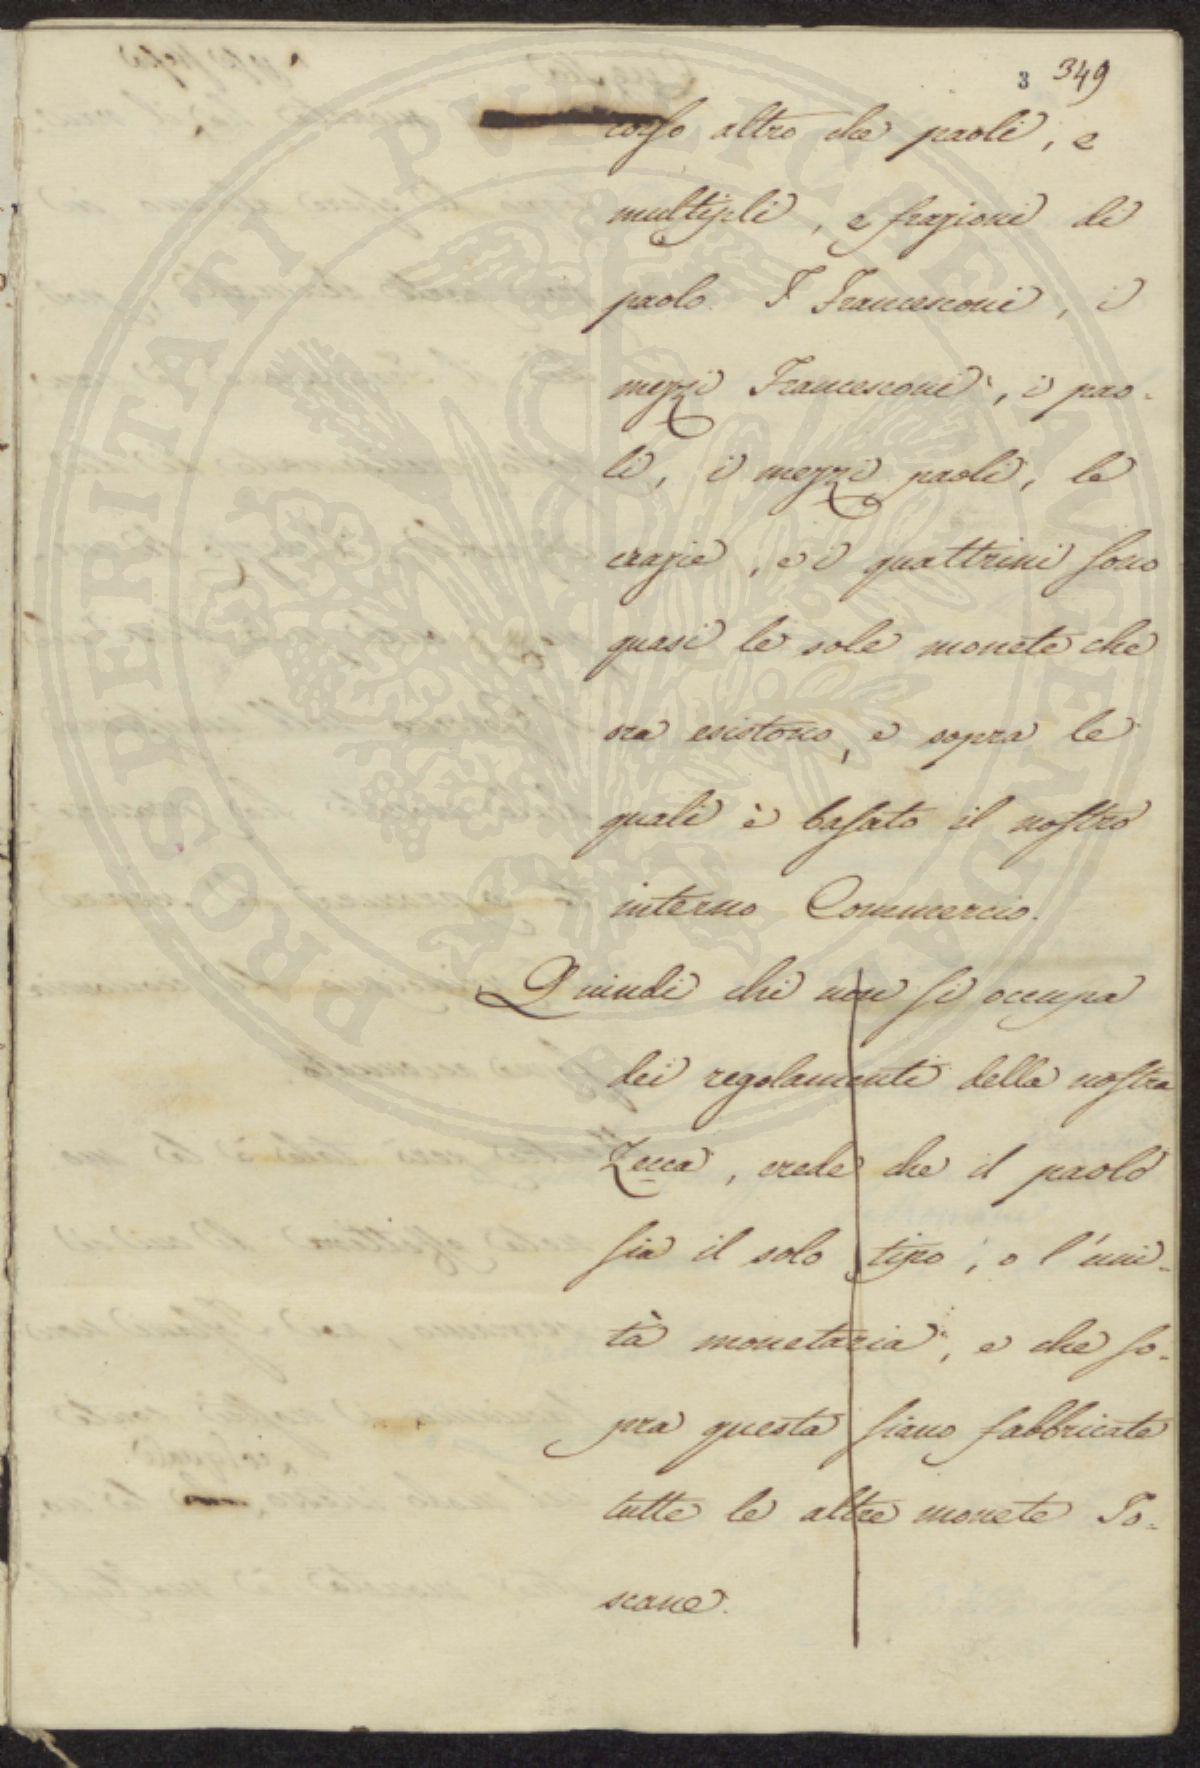 3 349
corso altro che paoli, e
multipli, e frazioni di
paolo. I Francesconi, i
mezzi Francesconi, i pao-
li, i mezzi paoli, le
crazie, e i quattrini sono
quasi le sole monete che
ora esistono, e sopra le
quali è basato il nostro
interno Commercio.
Quindi chi non si occupa
dei regolamenti della nostra
Zecca, crede che il paolo
sia il solo tipo, o l'uni-
tà monetaria, e che so-
pra questa siano fabbricate
tutte le altre monete To-
scane.
PROSPERITATI PVBLICAE AVGENDAE